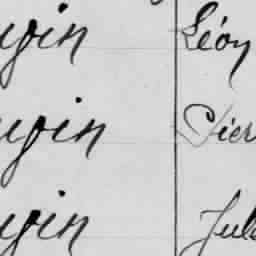 ugin Léon
ugin Pier
ugin Jul